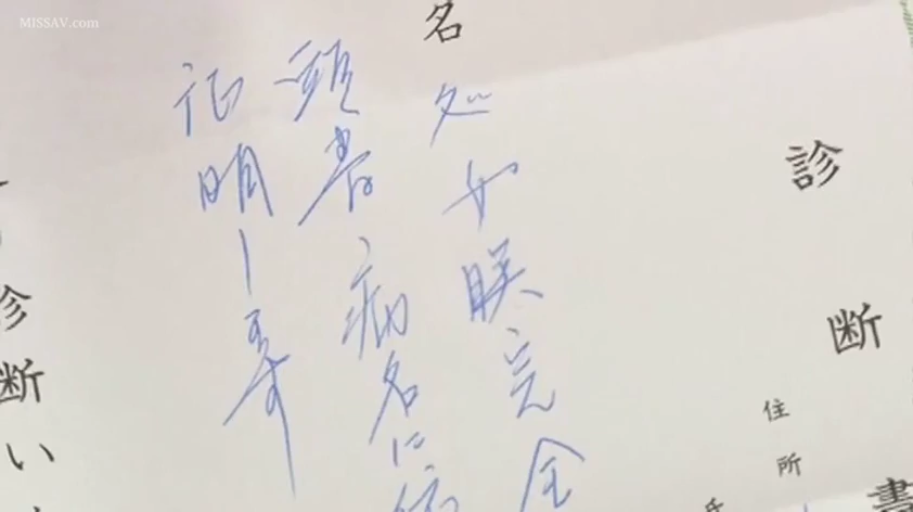 MISSAV.com
診断書
住所
氏
名
処女膜完全
頭書病名に
証明し
診断い